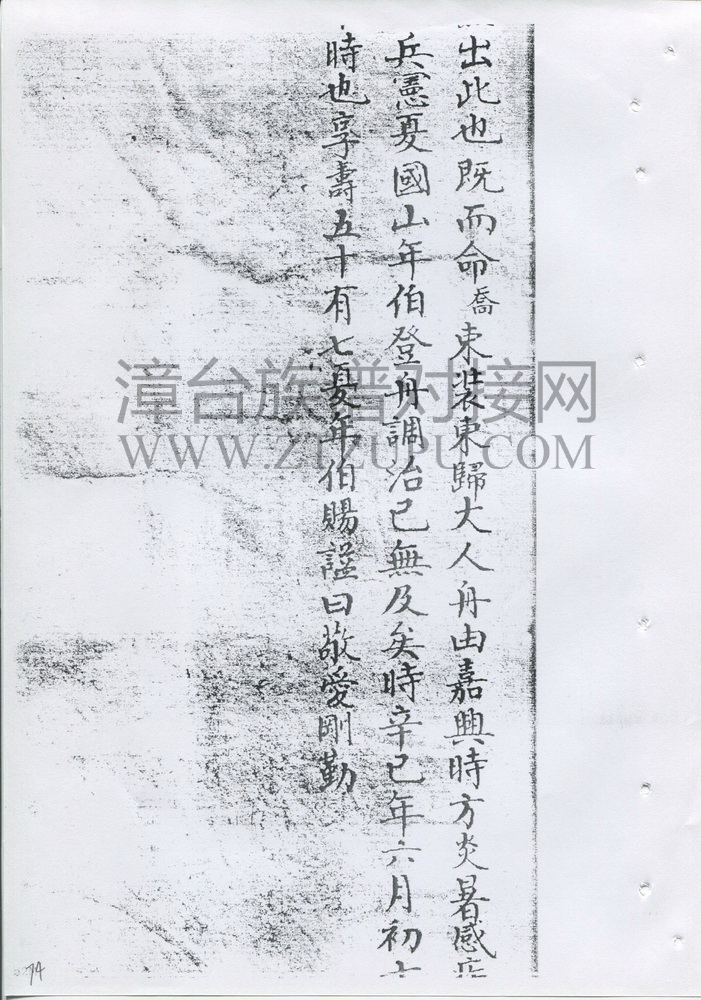 出此也既而命喬束裝東歸大人舟由嘉興時方炎暑感
兵憲夏國山年伯登舟調治已無及矣時辛巳年六月初
時也享壽五十有七夏年伯賜諡曰敬愛剛勤
漳台族谱对接网
WWW.ZTZUPU.COM
74